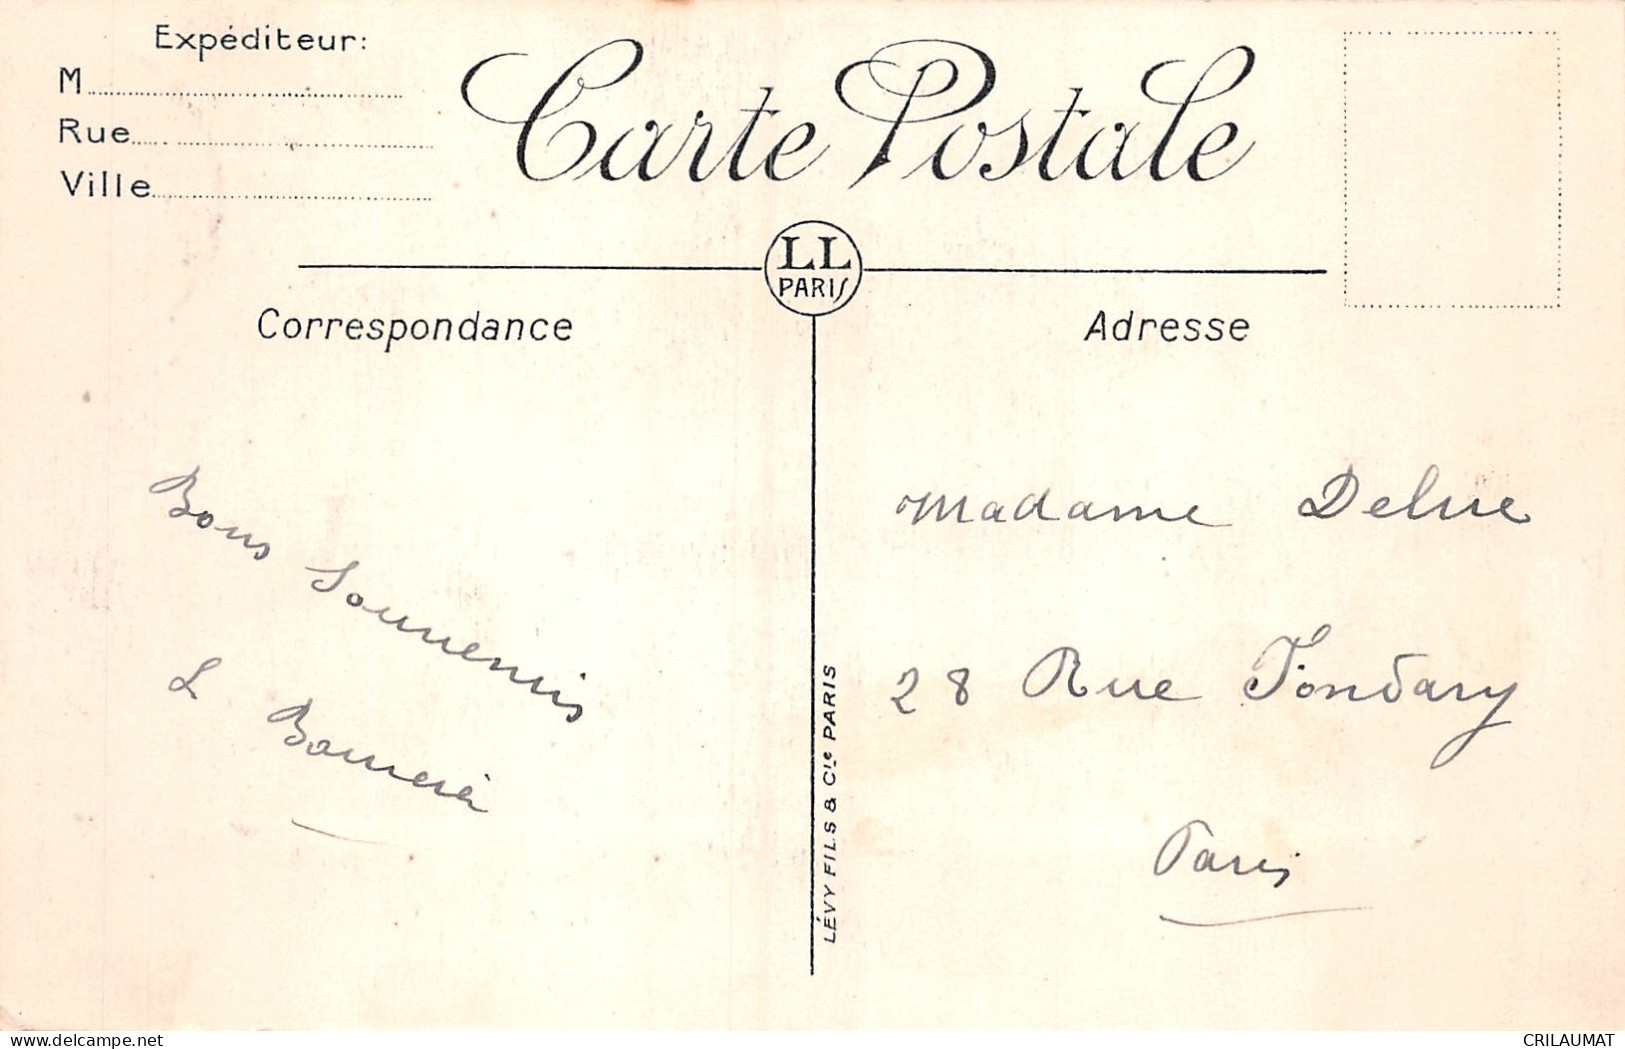 Expéditeur:
M
Rue
Ville
Carte Postale
LL
PARIS
Correspondance
Adresse
Bons Souvenirs
L
Madame Delrue
28 Rue Fondary
Paris
LÉVY FILS & Cie PARIS
www.delcampe.net
CRILAUMAT